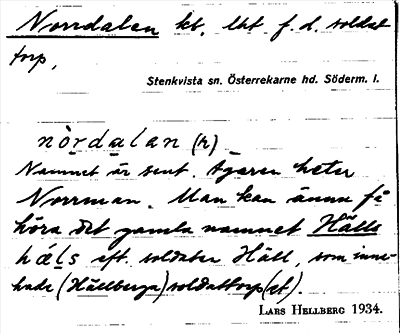 Norrdalen kt, lht f. d. soldat
torp,
Stenkvista sn. Österrekarne hd. Söderm. l.
nòrdalan (h)
Namnet är sent. Ägaren heter
Norrman. Man kan ännu få
höra det gamla namnet Hälls
hǽls eft. soldaten Häll, som inne-
hade (Hällberga) soldattorp(et).
LARS HELLBERG 1934.